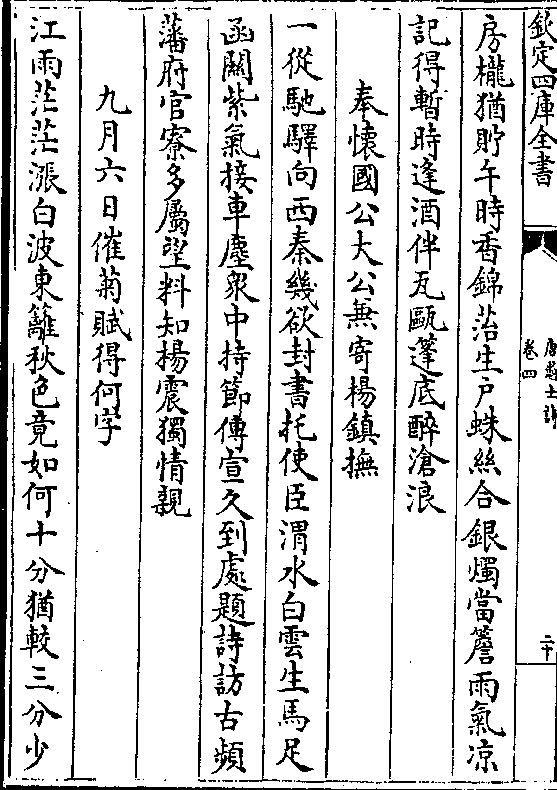 欽定四庫全書
唐愚士詩
卷四
二十
房櫳猶貯午時香錦萡生戸蛛絲合銀燭當簷雨氣凉
記得暫時逢酒伴瓦甌蓬底醉滄浪
奉懷國公大公無寄楊鎮撫
一從馳驛向西秦幾欲封書托使臣渭水白雲生馬足
函關紫氣接車塵衆中持節傳宣久到處題詩訪古頻
藩府官寮多屬望料知楊震獨情親
九月六日催菊賦得何字
江雨茫茫漲白波東籬秋色竟如何十分猶較三分少